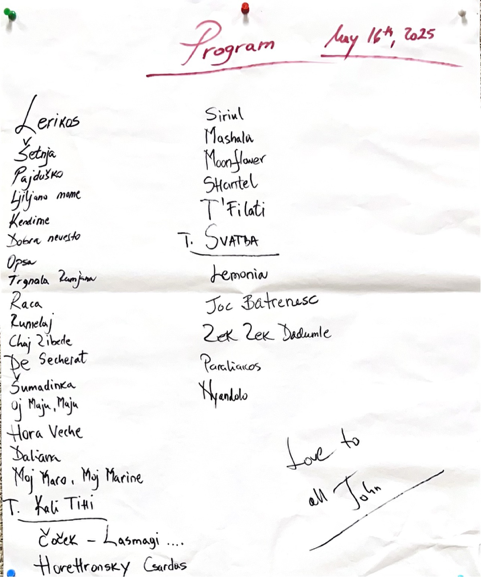 Program May 16th, 2025
Lerikos
Šetnja
Pajduško
Ljiljano mome
Kendime
Dobra nevesto
Opsa
Trgnala Rumjana
Raca
Rumelaj
Chaj Zibede
De Secherat
Šumadinka
Oj Maju, Maju
Hora Veche
Daliana
Moj Maro, Moj Marine
T. Kali Titti
Čoček - Lasmagi ....
Horehronsky Csardas
Siriul
Mashala
Moonflower
Shantel
T'Filati
T. SVATBA
Lemonia
Joc Batrenesc
Zek Zek Dadumle
Paraliakos
Nyandolo
Love to
all John